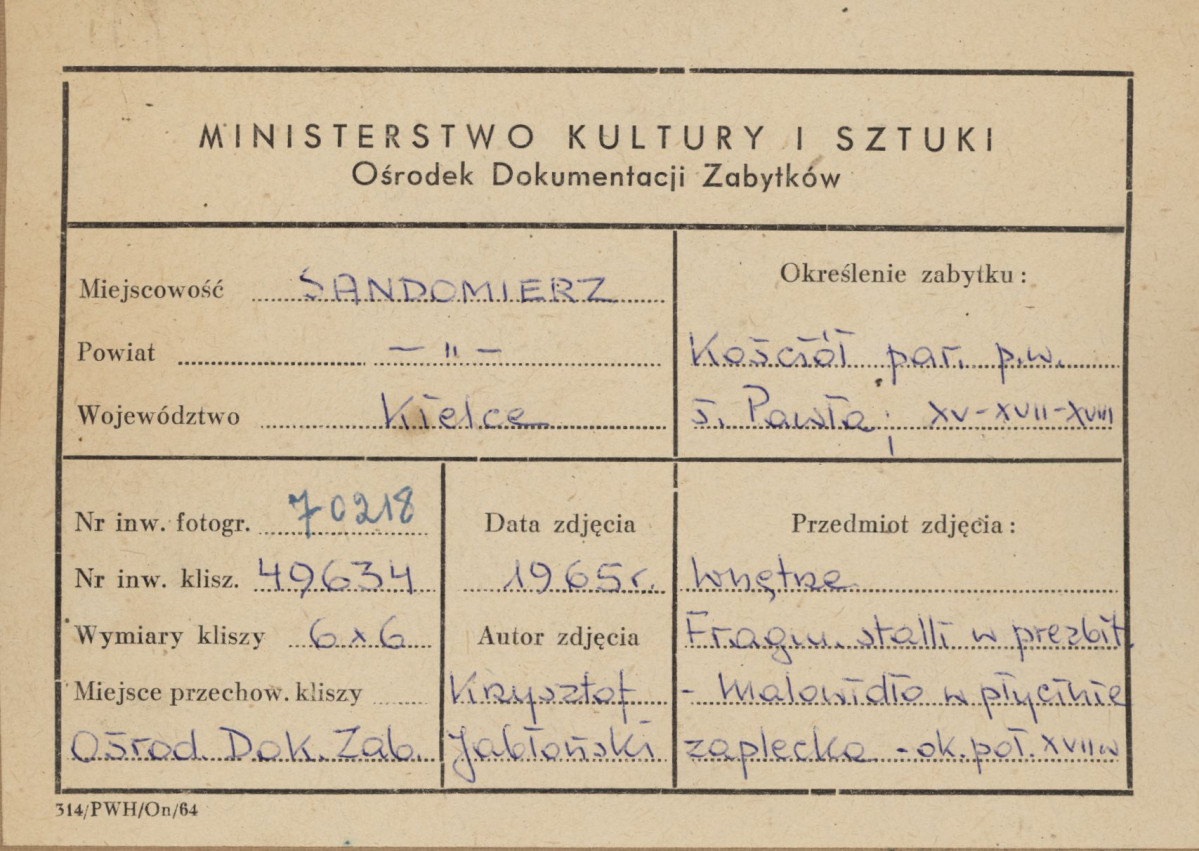 MINISTERSTWO KULTURY I SZTUKI
Ośrodek Dokumentacji Zabytków
Miejscowość SANDOMIERZ
Powiat — " —
Województwo Kielce
Określenie zabytku:
Kościół par. p.w.
ś. Pawła; XV-XVII-XVIII
Nr inw. fotogr. 70218
Nr inw. klisz. 49634
Wymiary kliszy 6x6
Miejsce przechow. kliszy
Ośrod. Dok. Zab.
Data zdjęcia
1965 r.
Autor zdjęcia
Krzysztof
Jabłoński
Przedmiot zdjęcia:
Wnętrze
Fragm. stalli w prezbit.
- Malowidło w płycinie
zaplecka - ok. poł. XVII w
314/PWH/On/64